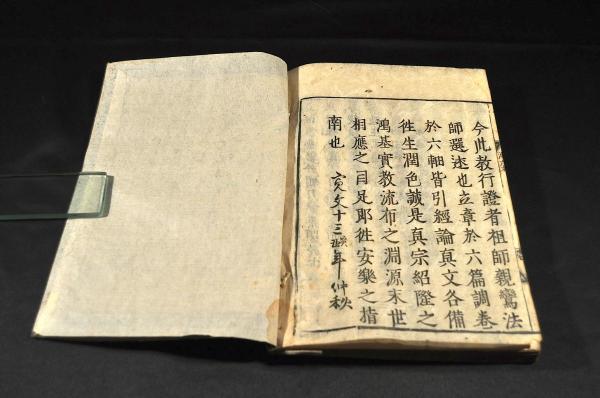 今此教行證者祖師親鸞法
師選述也立章於六篇調卷
於六軸皆引經論真文各備
徃生潤色誠是真宗紹隆之
鴻基實教流布之淵源末世
相應之目足即徃安樂之指
南也 寛文十三癸丑年仲秋